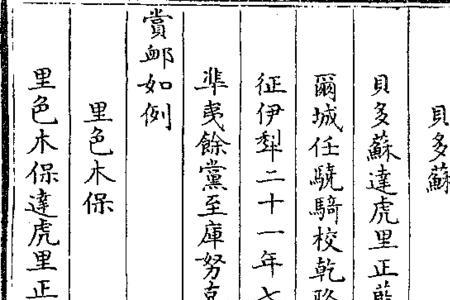 貝多蘇
貝多蘇達虎里正藍
爾城任驍騎校乾隆
征伊犂二十一年七
凖夷餘黨至庫努克
賞卹如例
里色木保
里色木保達虎里正